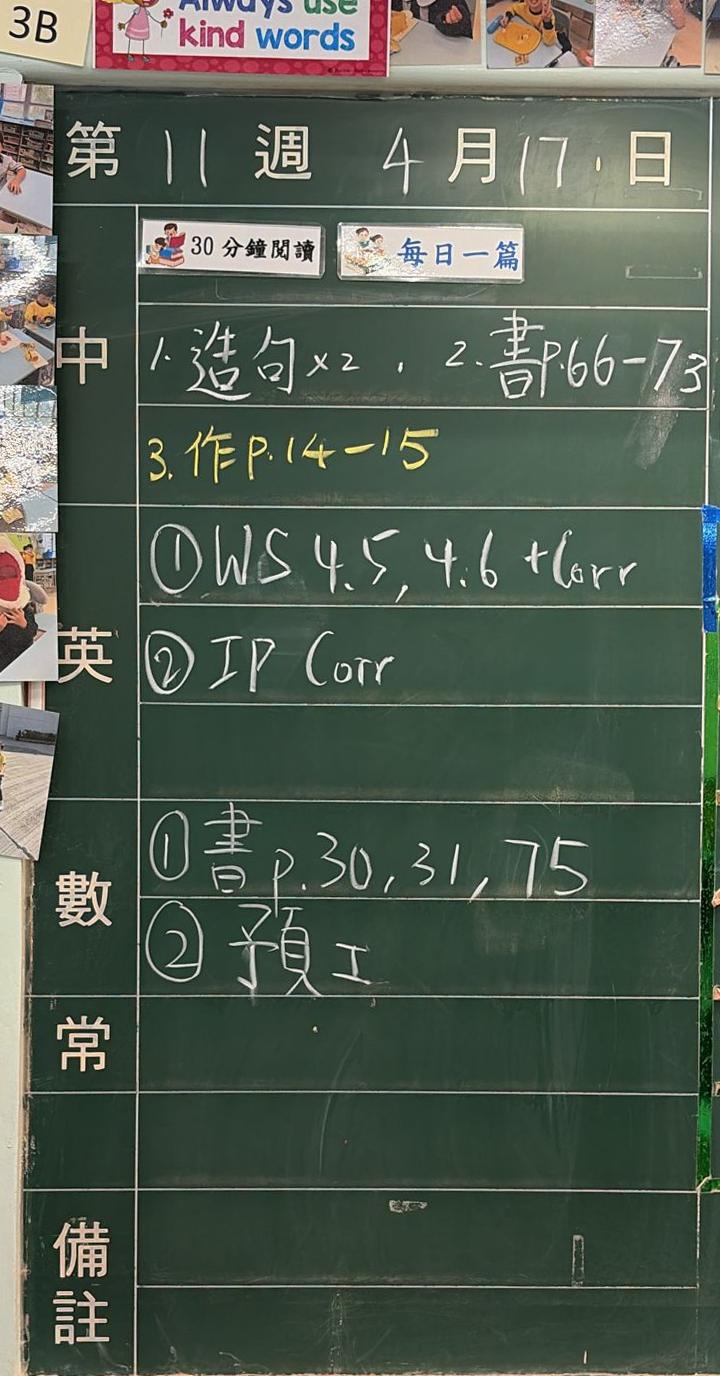 3B
Always use
kind words
第 11 週 4 月 17 日
30 分鐘閱讀 每日一篇
中 1. 造句 x2 . 2. 書P.66-73
3. 作P.14-15
英 ① WS 4.5, 4.6 +Corr
② IP Corr
數 ① 書 p.30, 31, 75
② 預工
常
備註